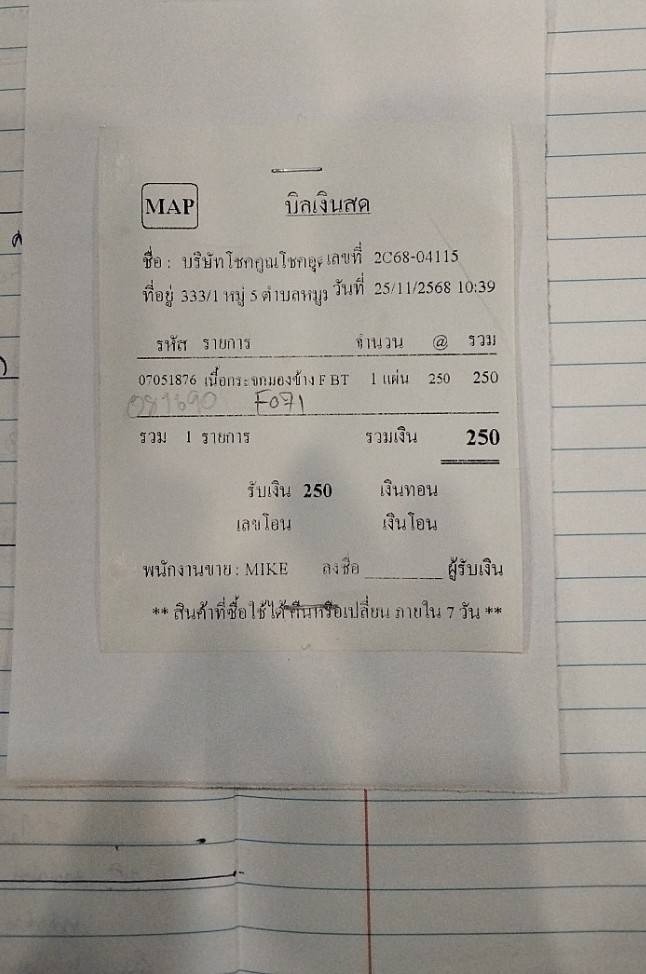 MAP บิลเงินสด
ชื่อ : บริษัทโชคคูณโชคอุ เลขที่ 2C68-04115
ที่อยู่ 333/1 หมู่ 5 ตำบลหมู วันที่ 25/11/2568 10:39
รหัส รายการ จำนวน @ รวม
07051876 เนื้อกระจกมองข้าง F BT 1 แผ่น 250 250
F071
รวม 1 รายการ รวมเงิน 250
รับเงิน 250 เงินทอน
เลขโอน เงินโอน
พนักงานขาย : MIKE ลงชื่อ ผู้รับเงิน
** สินค้าที่ซื้อไปใช้ได้ คืนหรือเปลี่ยน ภายใน 7 วัน **